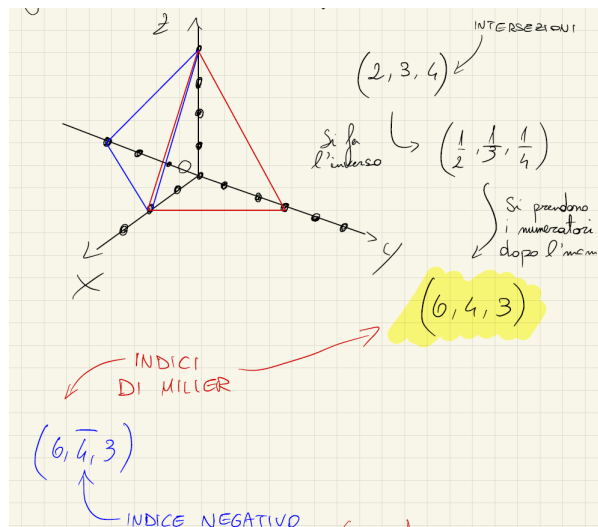 Z
INTERSEZIONI
(2, 3, 4)
Si fa
l'inverso
(1/2, 1/3, 1/4)
O
Si prendono
i numeratori
dopo l'mcm
X
Y
(6, 4, 3)
INDICI
DI MILLER
(6, 4̅, 3)
INDICE NEGATIVO